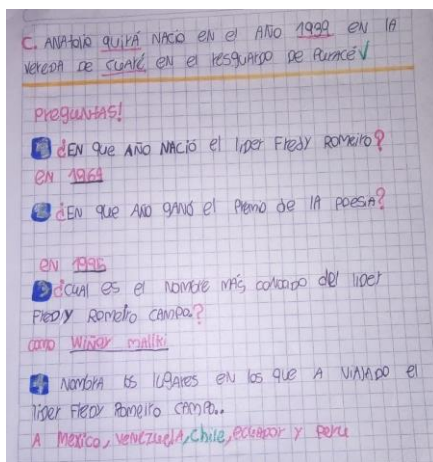 C. ANAtolio quirá NACio EN el AÑO 1932 EN lA
VEREDA DE CUARE EN el resguardo DE PURACÉ
PREGUNTAS!
1 ¿EN que AÑO NACió el liDER FREDY ROMEIRO?
EN 1964
2 ¿EN que AÑO gANó el PREMIO DE lA POESIA?
EN 1996
3 ¿CUAl es el NOMBRE MÁS CONOCIDO DEl liDER
FREDY ROMEIRO CAMPO.?
como WIÑAY MAllKi
4 NOMBRA los lUgARES EN los que A VIAJADO el
liDER FREDY ROMEIRO CAMPO..
A MEXICO, VENEZUELA, Chile, ECUADOR y PERU